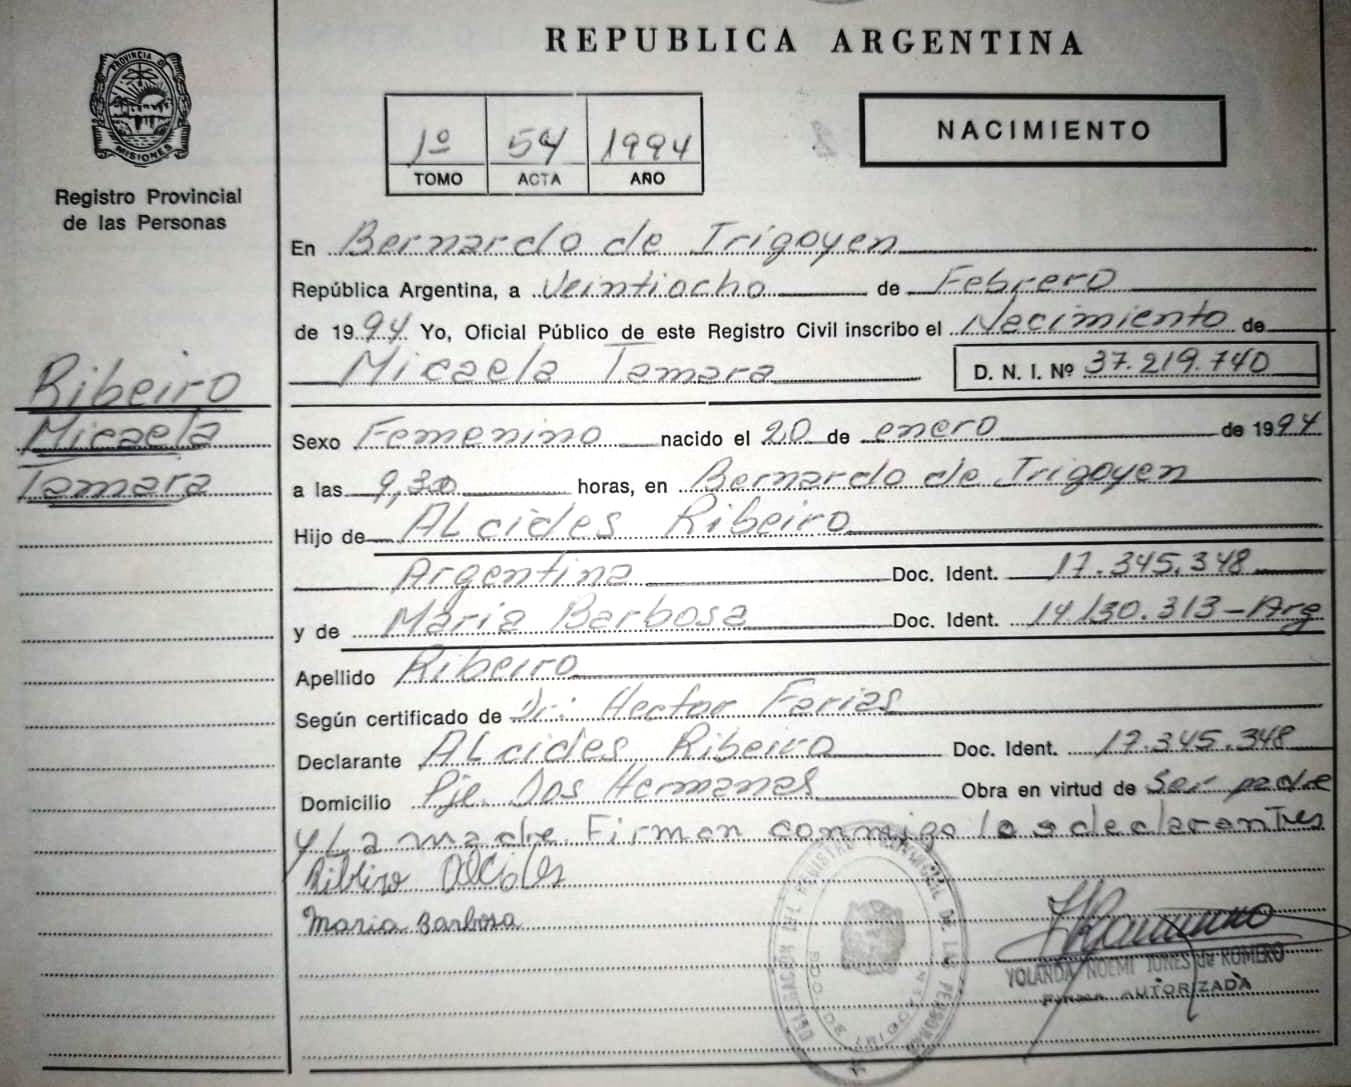 REPUBLICA ARGENTINA
PROVINCIA DE
MISIONES
Registro Provincial
de las Personas
1º 54 1994
TOMO ACTA AÑO
NACIMIENTO
En Bernardo de Irigoyen
República Argentina, a Veintiocho de Febrero
de 1994 Yo, Oficial Público de este Registro Civil inscribo el Nacimiento de
Micaela Tamara D. N. I. Nº 37.219.740
Ribeiro
Micaela
Tamara
Sexo Femenino nacido el 20 de enero de 1994
a las 9,30 horas, en Bernardo de Irigoyen
Hijo de ALcides Ribeiro
Argentina Doc. Ident. 17.345.348
y de Maria Barbosa Doc. Ident. 14.130.313-Arg
Apellido Ribeiro
Según certificado de Dr: Hector Farias
Declarante ALcides Ribeiro Doc. Ident. 17.345.348
Domicilio Pje. Dos Hermanas Obra en virtud de Ser padre
y La madre. Firman conmigo los declarantes
Ribeiro Alcides
Maria Barbosa
YOLANDA NOEMI JONES de ROMERO
FIRMA AUTORIZADA
DELEGACION DEL REGISTRO PROVINCIAL DE LAS PERSONAS